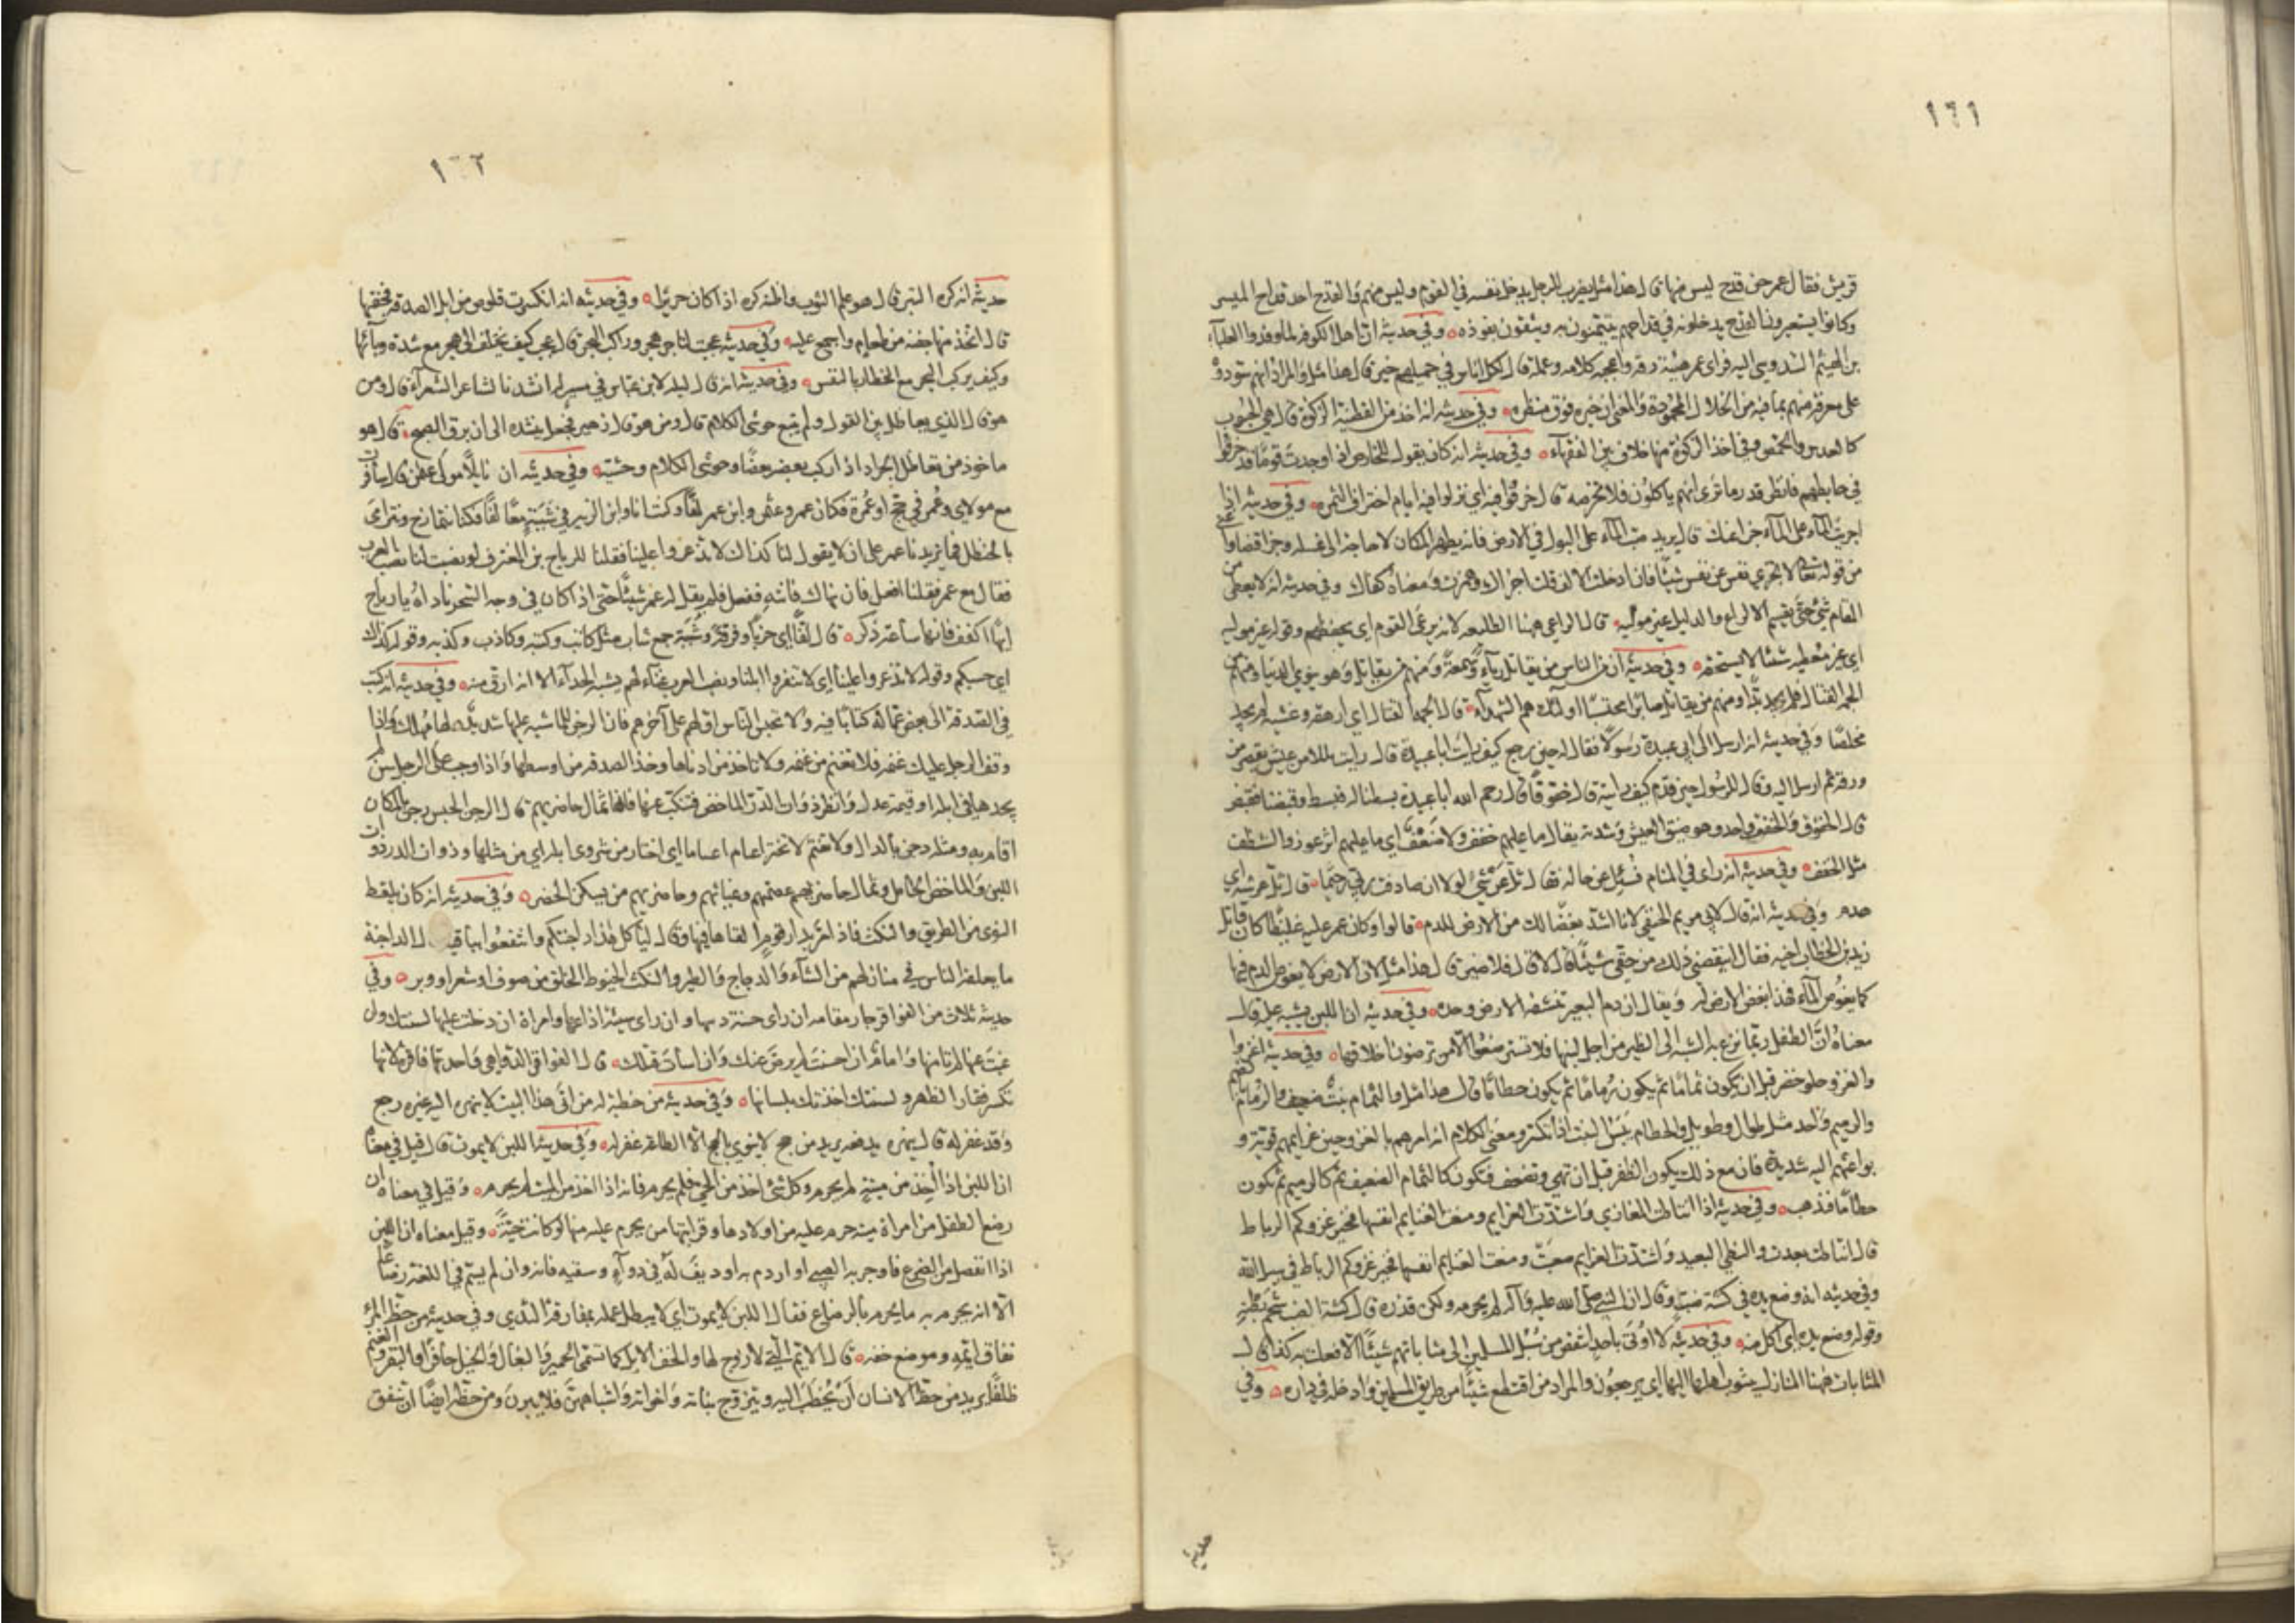 ١٦١
قريش فقال عمر حن قدح ليس منها قال هذا مثل يضرب للرجل يدخل نفسه في القوم وليس منهم والقدح احد قداح الميسر
وكانوا يستعيرون القدح يدخلونه في قداحهم يتيمنون به ويثقون بفوزه وفي حديثه ان اهل الكوفة لما اوفدوا العلباء
بن الهيثم السدوسي اليه فراى عمر هيئته رثة واعجبه كلامه وعمله قال لكل اناس في جميلهم خبر قال هذا مثل والمراد انهم سودوه
على معرفة منهم بما فيه من الخلال المحمودة والمعنى ان خبره فوق منظره وفي حديثه انه اخذ من القطنية الزكوة قال هي الحبوب
كالعدس والحمص وفي اخذ الزكوة منها خلاف بين الفقهاء وفي حديثه انه كان يقول للخارص اذا وجدت قوما قد خرفوا
في حايطهم فانظر قدر ما ترى انهم ياكلون فلا تخرصه قال خرفوا فيه اي نزلوا فيه ايام اختراف الثمرة وفي حديثه اذا
اجريت الماء على الماء جزا عنك قال يريد صب الماء على البول في الارض فانه يطهر المكان لا حاجة الى غسله وجزا قضا
من قوله تعالى لا تجزي نفس عن نفس شيئا فان ادخلت الالف قلت اجزاك وهمزت ومعناه كفاك وفي حديثه انه لا يعطى من
المغانم شيء حتى يقسم الا لراع والدليل غير موليه قال الراعي ههنا الطليعة لانه يرعى القوم اي يحفظهم وقوله غير موليه
اي غير معطيه شيئا لا يستحقه وفي حديثه ان من الناس من يقاتل رياء وسمعة ومنهم من يقاتل وهو ينوي الدنيا ومنهم من
الجمه القتال فلم يجد بدا ومنهم من يقاتل صابرا محتسبا اولئك هم الشهداء قال الجمه القتال اي ارهقه وغشيه فلم يجد
مخلصا وفي حديثه انه ارسل الى ابي عبيدة رسولا فقال له حين رجع كيف رايت ابا عبيدة قال رايت بللا من عيش يقصر من
ورقه ثم ارسل اليه وقال للرسول حين قدم كيف رايته قال حفوفا قال رحم الله ابا عبيدة بسطنا له فبسط وقبضنا فقبض
قال الحفوف والحفف واحد وهو ضيق العيش وشدته يقال ما عليهم حفف ولا ضفف اي ما عليهم اثر عوز والشظف
مثل الحفف وفي حديثه انه راى في المنام فسئل عن حاله فقال ثل عرشي لولا ان صادفت ربي رحيما قال ثل عرشه اي
هدم وفي حديثه انه قال لابي مريم الحنفي لانا اشد بغضا لك من الارض للدم قالوا وكان عمر عليه غليظا كان قاتل
زيد بن الخطاب اخيه فقال اينقصني ذلك من حقي شيئا قال لا قال فلا ضير قال هذا مثل لان الارض لا يغوص الدم فيها
كما يغوص الماء فهذا بغض الارض له ويقال ان دم البعير تنشفه الارض وحده وفي حديثه ان اللبن يشبه عليه قال
معناه ان الطفل ربما نزع به الشبه الى الظئر من اجل لبنها فلا تسترضعوا الا من ترضون اخلاقها وفي حديثه اغزوا
والغزو حلو خضر قبل ان يكون ثماما ثم يكون رماما ثم يكون حطاما قال هذا مثل والثمام نبت ضعيف والرمام
والرميم واحد مثل طوال وطويل والحطام يبس النبت اذا تكسر ومعنى الكلام انه امرهم بالغزو وحين عزايمهم قوية و
بواعثهم اليه شديدة فان مع ذلك يكون الظفر قبل ان تهي وتضعف فتكون كالثمام الضعيف ثم كالرميم ثم تكون
حطاما فذهب وفي حديثه اذا انتاطت المغازي واشتدت العزايم ومنعت الغنايم انفسها فخير غزوكم الرباط
قال انتاطت بعدت والنطي البعيد واشتدت العزايم صعبت ومنعت الغنايم انفسها فخير غزوكم الرباط في سبيل الله
وفي حديثه انه وضع يده في كشية ضب وقال ان النبي صلى الله عليه وآله لم يحرمه ولكن قذره قال كشية الضب شحم بطنه
وقوله وضع يده اي اكل منه وفي حديثه لا اوتى باحد انتقص من سبل المسلمين الى مثاباتهم شيئا الا فعلت به كذا قال
المثابات ههنا المنازل يثوب اهلها اليها اي يرجعون والمراد من اقتطع شيئا من طريق المسلمين وادخله في داره وفي
حديثه
١٦٢
حديثه انه كره النير قال هو علم الثوب واظنه كره اذا كان حريرا وفي حديثه انه انكسرت قلوص من ابل الصدقة فجفنها
قال اتخذ منها جفنة من طعام واجمع عليه وفي حديثه عجبت لتاجر هجر وراكب البحر قال عجب كيف يختلف الى هجر مع شدة وبائها
وكيف يركب البحر مع الخطار بالنفس وفي حديثه انه قال ليلة لابن عباس في مسير له انشدنا لشاعر الشعراء قال ومن
هو قال الذي يعاظل بين القول ولم يتبع حوشي الكلام قال ومن هو قال زهير فجعل ينشده الى ان برق الصبح قال هو
ماخوذ من تعاظل الجراد اذا ركب بعضه بعضا وحوشي الكلام وحشيه وفي حديثه ان نايلا مولى عثمن قال سافرت
مع مولاي وعمر في حج او عمرة فكان عمر وعثمن وابن عمر لفا وكنت انا وابن الزبير في شببة معنا لفا فكنا نتمازح ونترامى
بالحنظل فما يزيدنا عمر على ان لا يقول لنا كذاك لا تذعروا علينا فقلنا لرباح بن المغترف لو نصبت لنا نصب العرب
فقال مع عمر فقلنا افعل فان نهاك فانته ففعل فلم يقل له عمر شيئا حتى اذا كان في وجه السحر ناداه يا رباح
ايها اكفف فانها ساعة ذكر قال لفا اي حزبا وفرقة وشببة جمع شاب مثل كاتب وكتبة وكاذب وكذبة وقوله كذاك
اي حسبكم وقوله لا تذعروا علينا اي لا تنفروا ابلنا ونصب العرب غناء لهم يشبه الحداء الا انه ارق منه وفي حديثه انه كتب
في الصدقة الى بعض عماله كتابا فيه ولا تحبس الناس اولهم على آخرهم فان الرجن للماشية عليها شديد لها مهلك واذا
وقف الرجل عليك غنمه فلا تعتم من غنمه ولا تاخذ من ادناها وخذ الصدقة من اوسطها واذا وجب على الرجل سن لم
يجدها في ابله او قيمة عدل وانظر ذوات الدر والماخض فتنكب عنها فانها ثمال حاضريهم قال الرجن الحبس رجن بالمكان
اقام به ومثله دجن بالدال ولا تعتم لا تختر اعتام اعتياما اي اختار من شروى ابله اي من مثلها وذوات الدر ذوات
اللبن والماخض الحامل وثمال حاضريهم عصمتهم وغياثهم وحاضريهم من يسكن الحضر وفي حديثه انه كان يلقط
النوى من الطريق والنكث فاذا مر بدار قوم القاها فيها وقال لياكل هذا داجنتكم وانتفعوا بباقيه قال الداجنة
ما يعلفه الناس في منازلهم من الشاء والدجاج والطير والنكث الخيوط الخلق من صوف او شعر او وبر وفي
حديثه ثلاث من الفواقر جار مقامه ان راى حسنة دسها وان راى سيئة اذاعها وامراة ان دخلت عليها لسنتك وان
غبت عنها لم تامنها وامام ان احسنت لم يرض عنك وان اسات قتلك قال الفواقر الدواهي واحدتها فاقرة لانها
تكسر فقار الظهر ولسنتك اخذتك بلسانها وفي حديثه من خطبة له من اتى هذا البيت لا ينهزه اليه غيره رجع
وقد غفر له قال ينهزه يدفعه يريد من حج لا ينوي بالحج الا الطاعة غفر له وفي حديثه اللبن لا يموت قال قيل في معناه
ان اللبن اذا اخذ من ميتة لم يحرم وكل شيء اخذ من الحي فلم يحرم فانه اذا اخذ من الميت لم يحرم وقيل في معناه ان
رضع الطفل من امراة ميتة حرم عليه من اولادها وقرابتها من يحرم عليه منها لو كانت حية وقيل معناه ان اللبن
اذا انفصل من الضرع فاوجر به الصبي او ادم به او ديف له في دوآء وسقيه فانه وان لم يسم في اللغة رضاعا
الا انه يحرم به ما يحرم بالرضاع فقال اللبن لا يموت اي لا يبطل عمله بمفارقة الثدي وفي حديثه من حظ المرء
نفاق ايمه وموضع خفه قال الايم التي لا زوج لها والخف الابل كما تسمى الحمير والبغال والخيل حافرا والبقر والغنم
ظلفا يريد من حظ الانسان ان يخطب اليه ويتزوج بناته واخواته واشباههن فلا يبرن ومن حظه ايضا ان تنفق